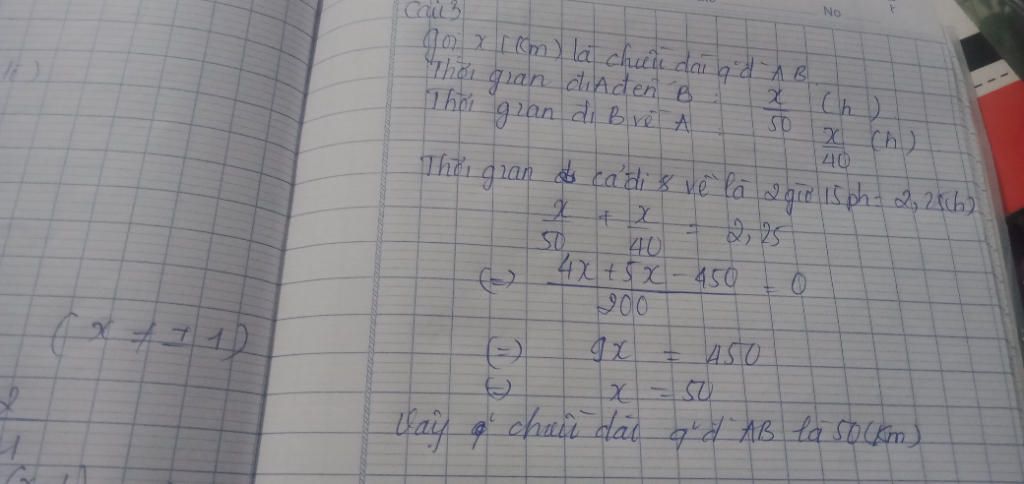 No
Câu 3
Gọi x (Km) là chiều dài qđ AB
Thời gian đi A đến B : x/50 (h)
Thời gian đi B về A x/40 (h)
Thời gian cả đi & về là 2 giờ 15 ph = 2,25(h)
x/50 + x/40 = 2,25
(=) (4x + 5x - 450)/200 = 0
(=) 9x = 450
(=) x = 50
Vậy chiều dài qđ AB là 50(Km)
(x ≠ ± 1)